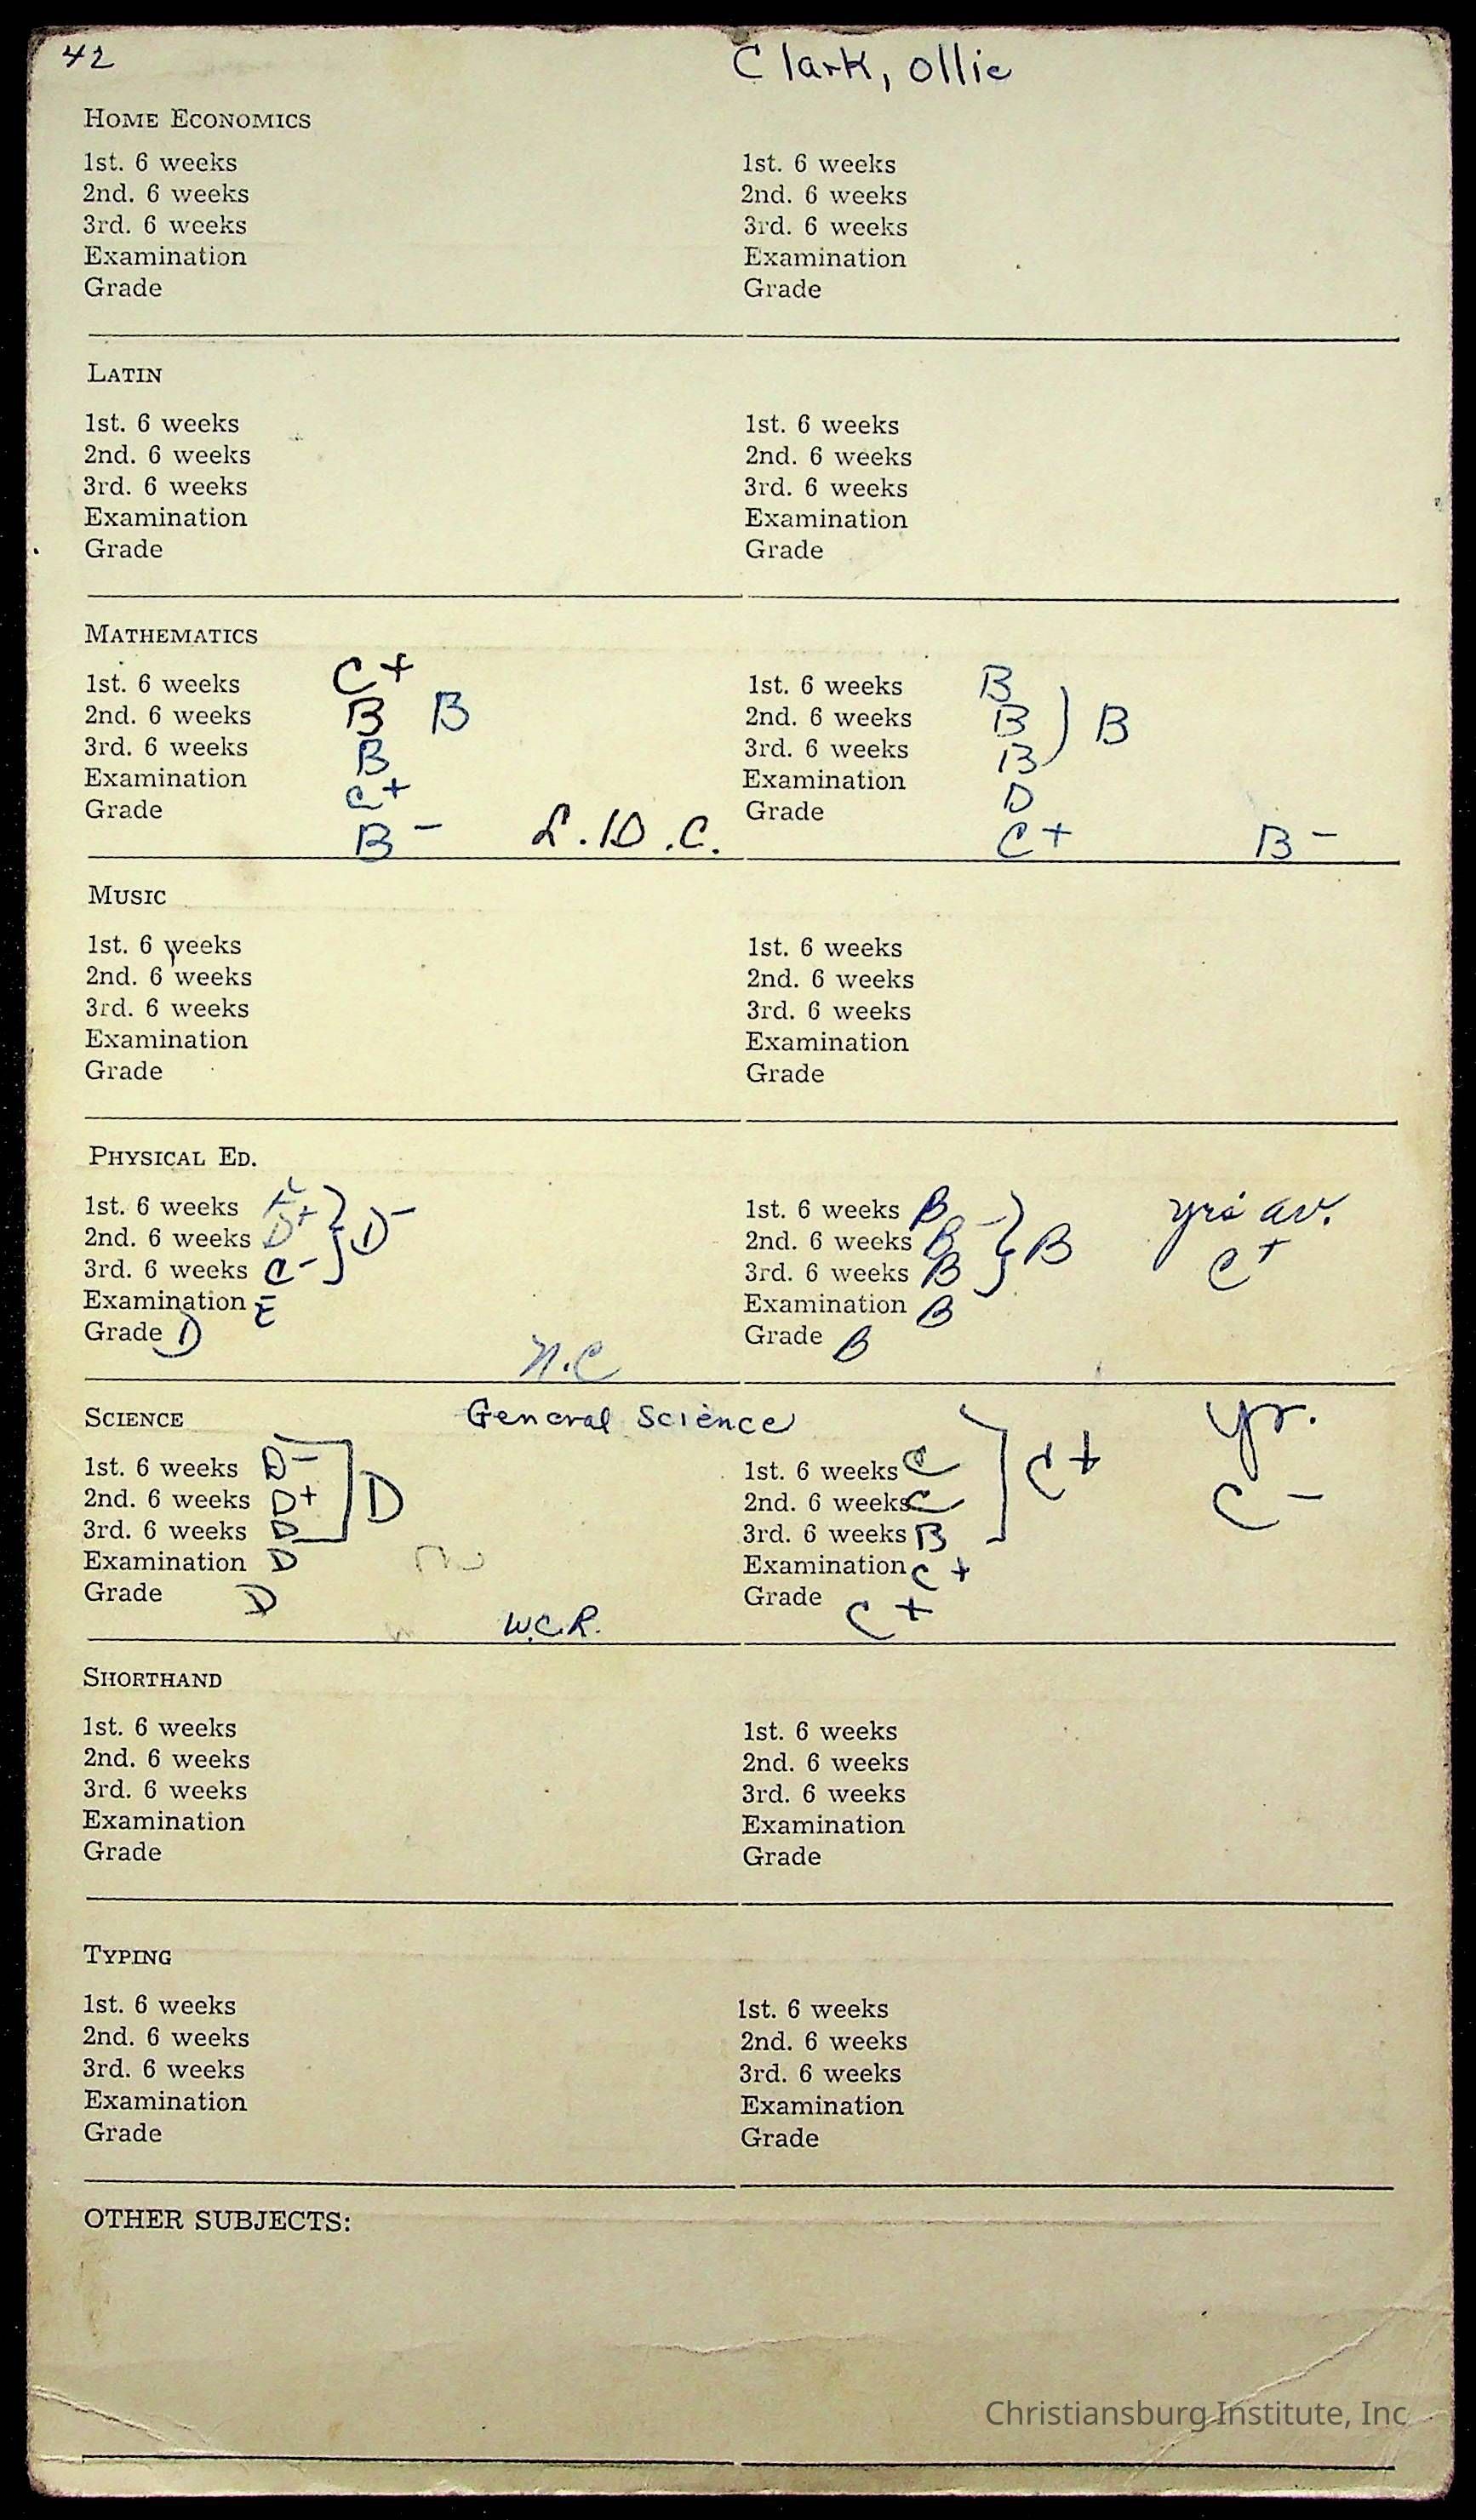 42
Clark, Ollie
HOME ECONOMICS
1st. 6 weeks
2nd. 6 weeks
3rd. 6 weeks
Examination
Grade
1st. 6 weeks
2nd. 6 weeks
3rd. 6 weeks
Examination
Grade
LATIN
1st. 6 weeks
2nd. 6 weeks
3rd. 6 weeks
Examination
Grade
1st. 6 weeks
2nd. 6 weeks
3rd. 6 weeks
Examination
Grade
MATHEMATICS
1st. 6 weeks C+
2nd. 6 weeks B B
3rd. 6 weeks B
Examination C+
Grade B-
L.D.C.
1st. 6 weeks B
2nd. 6 weeks B ) B
3rd. 6 weeks B
Examination D
Grade C+
B-
MUSIC
1st. 6 weeks
2nd. 6 weeks
3rd. 6 weeks
Examination
Grade
1st. 6 weeks
2nd. 6 weeks
3rd. 6 weeks
Examination
Grade
PHYSICAL ED.
1st. 6 weeks
2nd. 6 weeks D+ } D-
3rd. 6 weeks C-
Examination E
Grade D
N.C
1st. 6 weeks B
2nd. 6 weeks B- } B
3rd. 6 weeks B
Examination B
Grade B
yrs av.
C+
SCIENCE General Science
1st. 6 weeks D-
2nd. 6 weeks D+ ] D
3rd. 6 weeks D
Examination D
Grade D
W.C.R.
1st. 6 weeks C
2nd. 6 weeks C ] C+
3rd. 6 weeks B
Examination C+
Grade C+
yr.
C-
SHORTHAND
1st. 6 weeks
2nd. 6 weeks
3rd. 6 weeks
Examination
Grade
1st. 6 weeks
2nd. 6 weeks
3rd. 6 weeks
Examination
Grade
TYPING
1st. 6 weeks
2nd. 6 weeks
3rd. 6 weeks
Examination
Grade
1st. 6 weeks
2nd. 6 weeks
3rd. 6 weeks
Examination
Grade
OTHER SUBJECTS:
Christiansburg Institute, Inc